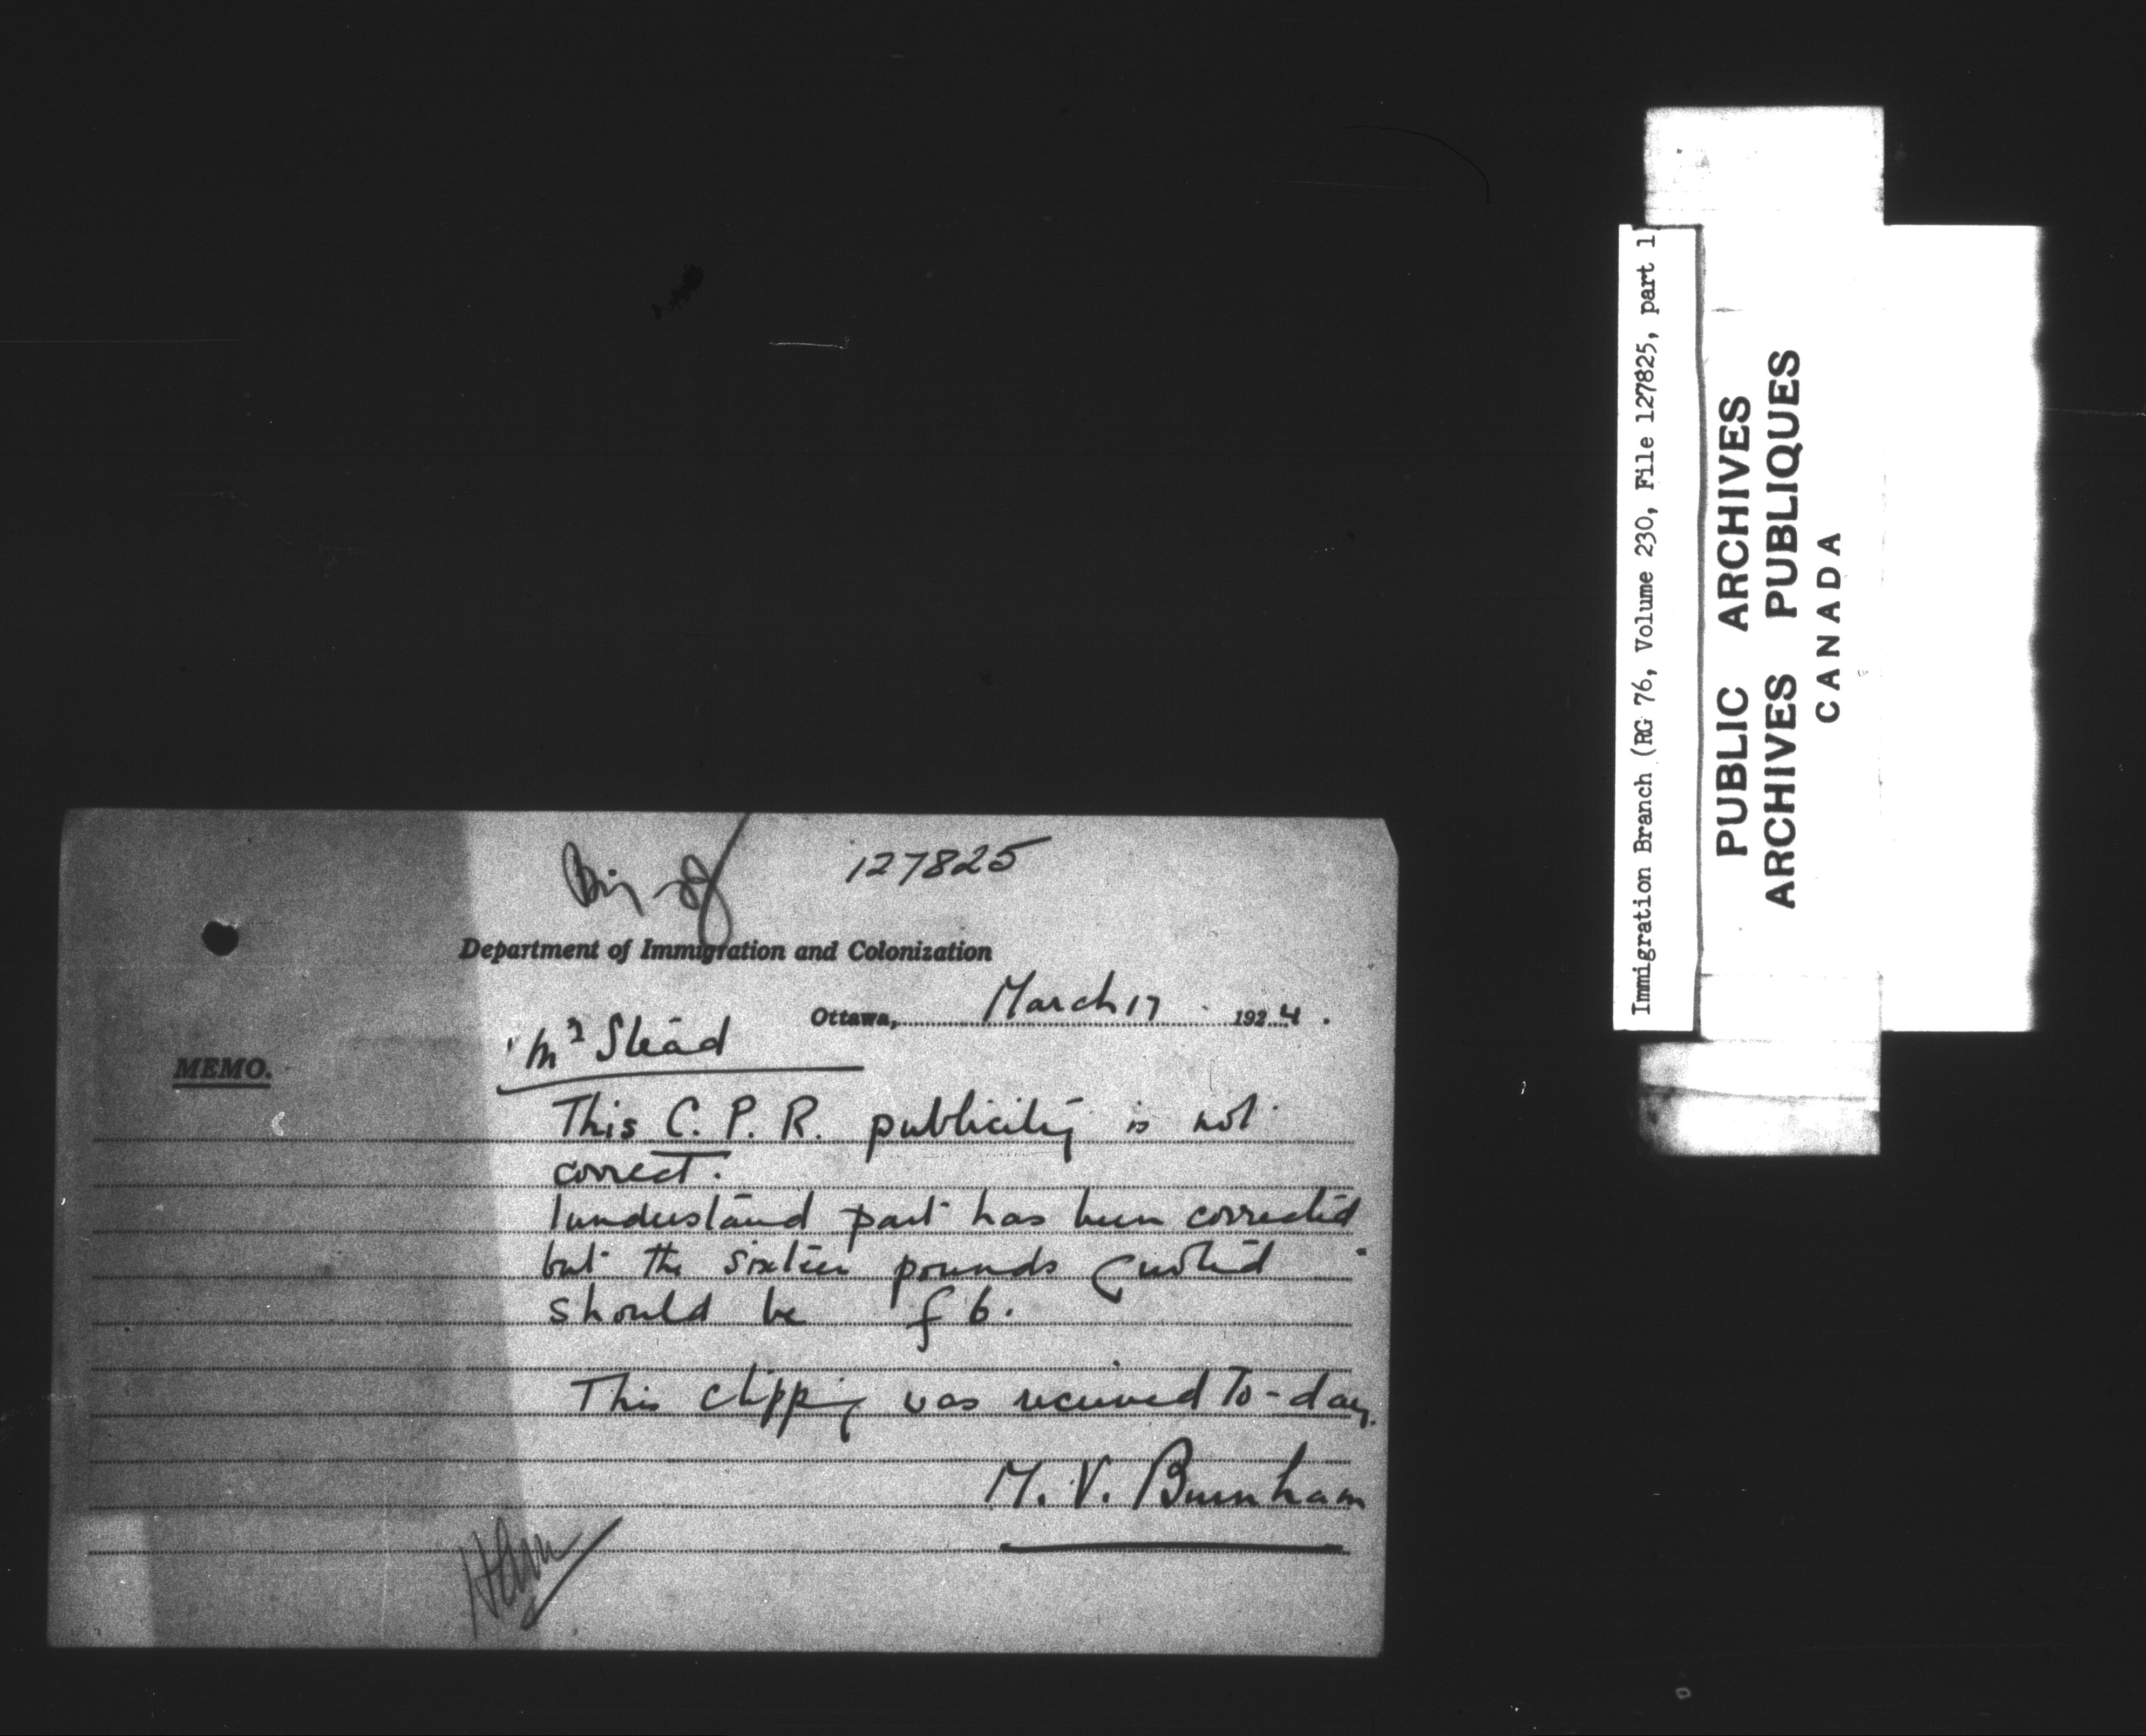 127825
Department of Immigration and Colonization
Ottawa, March 17 1924.
Mr Stead
MEMO.
This C. P. R. publicity is not
correct.
I understand part has been corrected
but the sixteen pounds quoted
should be £6.
This clipping was received To-day.
M. V. Burnham
Immigration Branch (RG 76, Volume 230, File 127825, part 1
PUBLIC ARCHIVES
ARCHIVES PUBLIQUES
CANADA